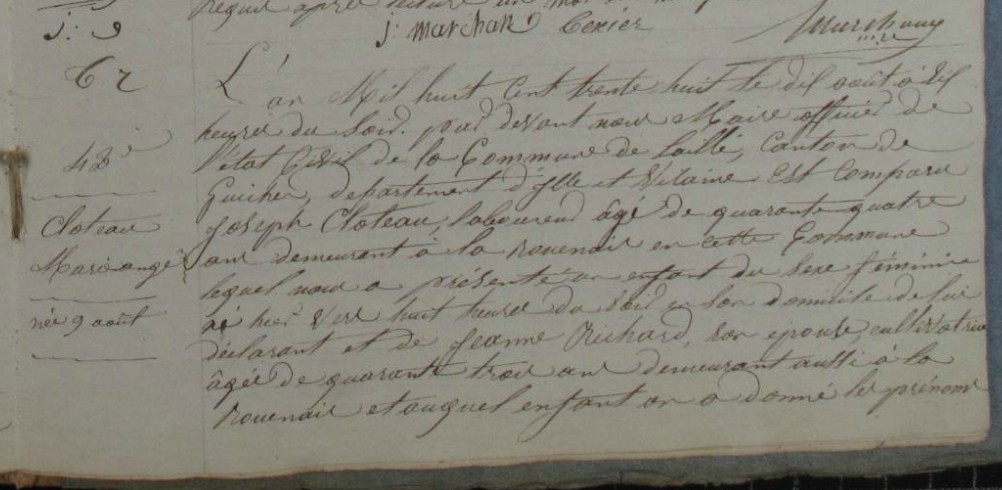 requis après lecture
j: 9
j: marchand Cerisier
Marchand
maire
62
43e
Cloteau
Marie ange
née 9 août
L'an Mil huit Cent trente huit le dix août à dix
heures du Soir. par devant nous Maire officier de
l'état Civil de la Commune de Laillé, Canton de
Guichen, département d'Ille et Vilaine Est Comparu
joseph Cloteau, laboureur âgé de quarante quatre
ans demeurant à la rouenais en cette Commune
lequel nous a présenté un enfant du Sexe féminin
né hier Vers huit heures du Soir en Son domicile de lui
déclarant et de jeanne Richard, son épouse, cultivatrice
âgée de quarante trois ans demeurant aussi à la
rouenais et auquel enfant on a donné les prénoms